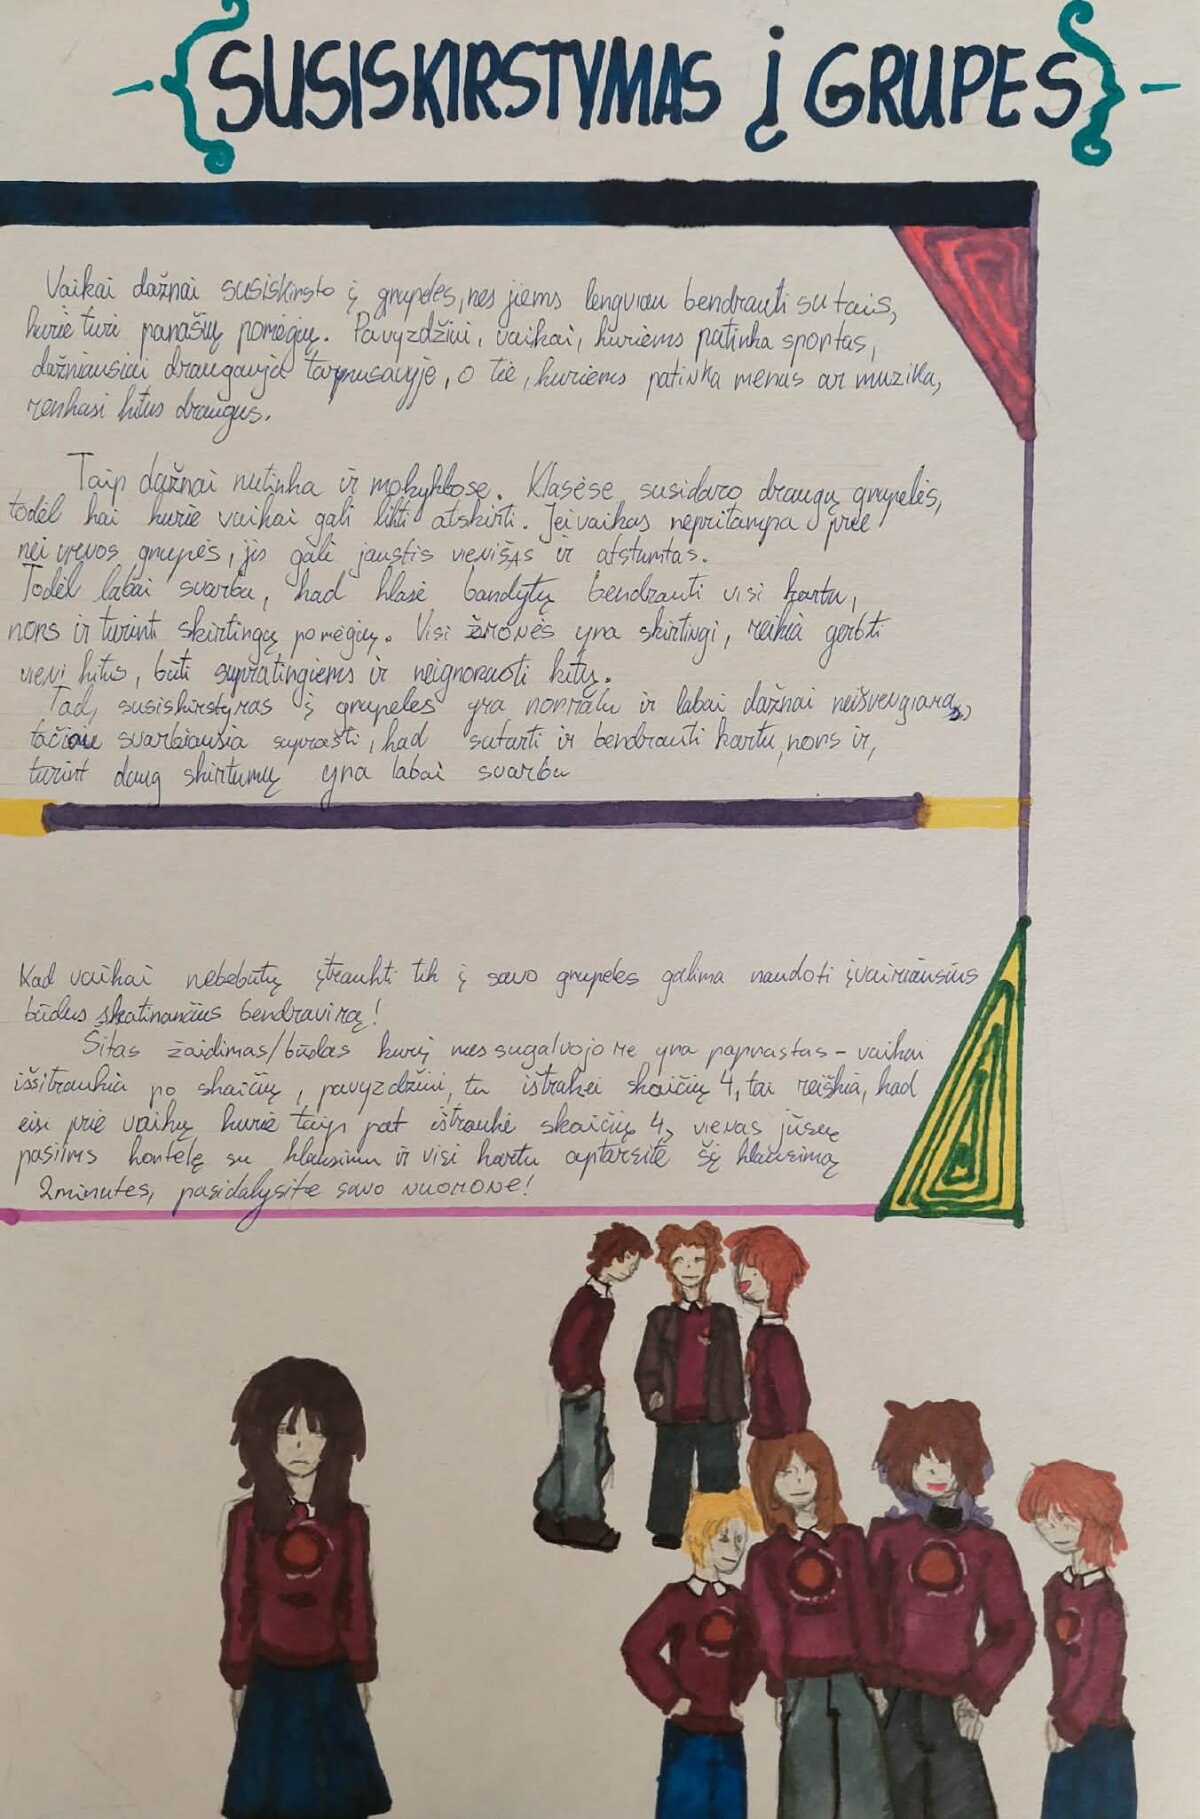 SUSISKIRSTYMAS Į GRUPES
Vaikai dažnai susiskirsto į grupeles, nes jiems lengviau bendrauti su tais,
kurie turi panašių pomėgių. Pavyzdžiui, vaikai, kuriems patinka sportas,
dažniausiai draugauja tarpusavyje, o tie, kuriems patinka menas ar muzika,
renkasi kitus draugus.
Taip dažnai nutinka ir mokyklose. Klasėse susidaro draugų grupelės,
todėl kai kurie vaikai gali likti atskirti. Jei vaikas nepritampa prie
nei vienos grupės, jis gali jaustis vienišas ir atstumtas.
Todėl labai svarbu, kad klasė bandytų bendrauti visi kartu,
nors ir turint skirtingų pomėgių. Visi žmonės yra skirtingi, reikia gerbti
vieni kitus, būti supratingiems ir neignoruoti kitų.
Tad, susiskirstymas į grupeles yra normalu ir labai dažnai neišvengiama,
tačiau svarbiausia suprasti, kad sutarti ir bendrauti kartu, nors ir,
turint daug skirtumų yra labai svarbu
Kad vaikai nebebūtų įtraukti tik į savo grupeles galima naudoti įvairiausius
būdus skatinančius bendravimą!
Šitas žaidimas/būdas kurį mes sugalvojome yra paprastas - vaikai
išsitraukia po skaičių, pavyzdžiui, tu ištrakei skaičių 4, tai reiškia, kad
eisi prie vaikų kurie taip pat ištraukė skaičių 4, vienas jūsų
pasiims kortelę su klausimu ir visi kartu aptarsite šį klausimą
2 minutes, pasidalysite savo nuomone!